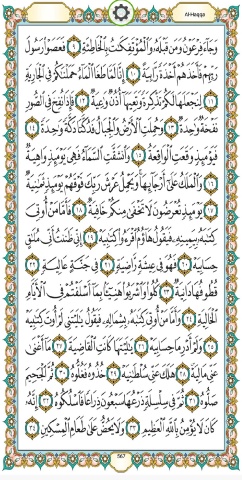 Al-Haqqa
وَجَآءَ فِرْعَوْنُ وَمَن قَبْلَهُۥ وَٱلْمُؤْتَفِكَٰتُ بِٱلْخَاطِئَةِ ٩ فَعَصَوْا۟ رَسُولَ
رَبِّهِمْ فَأَخَذَهُمْ أَخْذَةً رَّابِيَةً ١٠ إِنَّا لَمَّا طَغَا ٱلْمَآءُ حَمَلْنَٰكُمْ فِى ٱلْجَارِيَةِ
١١ لِنَجْعَلَهَا لَكُمْ تَذْكِرَةً وَتَعِيَهَآ أُذُنٌ وَٰعِيَةٌ ١٢ فَإِذَا نُفِخَ فِى ٱلصُّورِ
نَفْخَةٌ وَٰحِدَةٌ ١٣ وَحُمِلَتِ ٱلْأَرْضُ وَٱلْجِبَالُ فَدُكَّتَا دَكَّةً وَٰحِدَةً ١٤
فَيَوْمَئِذٍ وَقَعَتِ ٱلْوَاقِعَةُ ١٥ وَٱنشَقَّتِ ٱلسَّمَآءُ فَهِىَ يَوْمَئِذٍ وَاهِيَةٌ
١٦ وَٱلْمَلَكُ عَلَىٰٓ أَرْجَآئِهَا وَيَحْمِلُ عَرْشَ رَبِّكَ فَوْقَهُمْ يَوْمَئِذٍ ثَمَٰنِيَةٌ
١٧ يَوْمَئِذٍ تُعْرَضُونَ لَا تَخْفَىٰ مِنكُمْ خَافِيَةٌ ١٨ فَأَمَّا مَنْ أُوتِىَ
كِتَٰبَهُۥ بِيَمِينِهِۦ فَيَقُولُ هَآؤُمُ ٱقْرَءُوا۟ كِتَٰبِيَهْ ١٩ إِنِّى ظَنَنتُ أَنِّى مُلَٰقٍ
حِسَابِيَهْ ٢٠ فَهُوَ فِى عِيشَةٍ رَّاضِيَةٍ ٢١ فِى جَنَّةٍ عَالِيَةٍ ٢٢
قُطُوفُهَا دَانِيَةٌ ٢٣ كُلُوا۟ وَٱشْرَبُوا۟ هَنِيٓـًٔۢا بِمَآ أَسْلَفْتُمْ فِى ٱلْأَيَّامِ
ٱلْخَالِيَةِ ٢٤ وَأَمَّا مَنْ أُوتِىَ كِتَٰبَهُۥ بِشِمَالِهِۦ فَيَقُولُ يَٰلَيْتَنِى لَمْ أُوتَ كِتَٰبِيَهْ
٢٥ وَلَمْ أَدْرِ مَا حِسَابِيَهْ ٢٦ يَٰلَيْتَهَا كَانَتِ ٱلْقَاضِيَةَ ٢٧ مَآ أَغْنَىٰ
عَنِّى مَالِيَهْ ٢٨ هَلَكَ عَنِّى سُلْطَٰنِيَهْ ٢٩ خُذُوهُ فَغُلُّوهُ ٣٠ ثُمَّ ٱلْجَحِيمَ
صَلُّوهُ ٣١ ثُمَّ فِى سِلْسِلَةٍ ذَرْعُهَا سَبْعُونَ ذِرَاعًا فَٱسْلُكُوهُ ٣٢ إِنَّهُۥ
كَانَ لَا يُؤْمِنُ بِٱللَّهِ ٱلْعَظِيمِ ٣٣ وَلَا يَحُضُّ عَلَىٰ طَعَامِ ٱلْمِسْكِينِ ٣٤
567